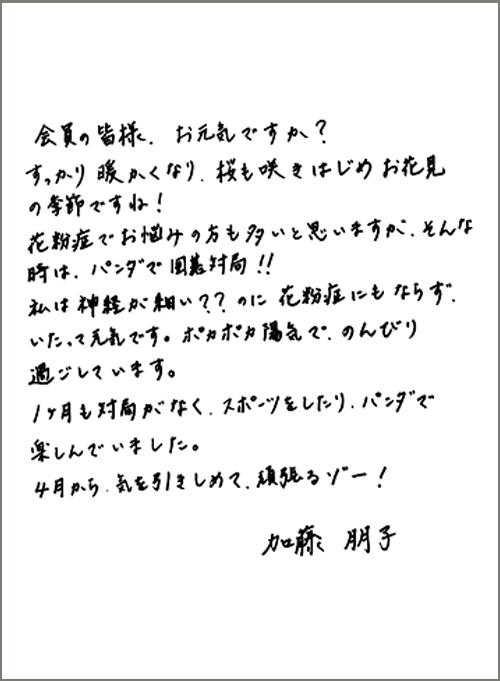 会員の皆様、お元気ですか?
すっかり暖かくなり、桜も咲きはじめお花見
の季節ですね!
花粉症でお悩みの方も多いと思いますが、そんな
時は、パンダで囲碁対局!!
私は神経が細い??のに花粉症にもならず、
いたって元気です。ポカポカ陽気で、のんびり
過ごしています。
1ヶ月も対局がなく、スポーツをしたり、パンダで
楽しんでいました。
4月から、気を引きしめて、頑張るゾー!
加藤 朋子